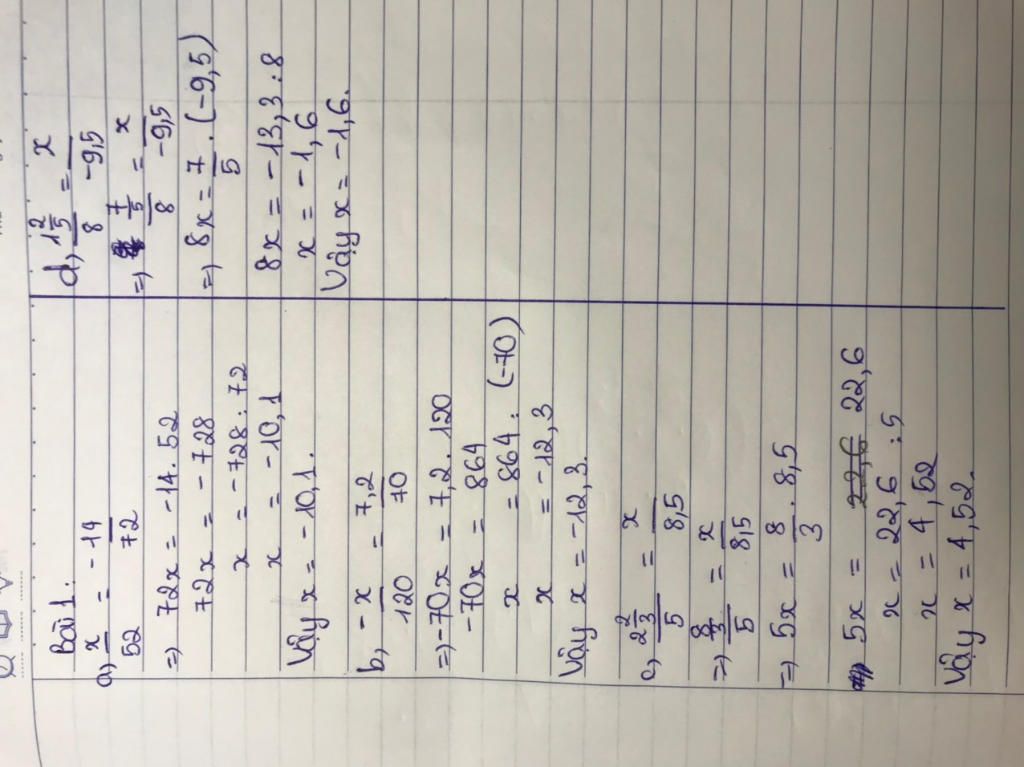 Bài 1:
a, x/52 = -14/72
=) 72x = -14.52
72x = -728
x = -728:72
x = -10,1
Vậy x = -10,1.
b, -x/120 = 7,2/70
=) -70x = 7,2.120
-70x = 864
x = 864:(-70)
x = -12,3
Vậy x = -12,3.
c, 2 2/3/5 = x/8,5
=) 8/3/5 = x/8,5
=) 5x = 8/3 . 8,5
5x = 22,6 22,6
x = 22,6 :5
x = 4,52
Vậy x = 4,52.
d, 1 2/5/8 = x/-9,5
=) 7/5/8 = x/-9,5
=) 8x = 7/5 . (-9,5)
8x = -13,3:8
x = -1,6
Vậy x = -1,6.